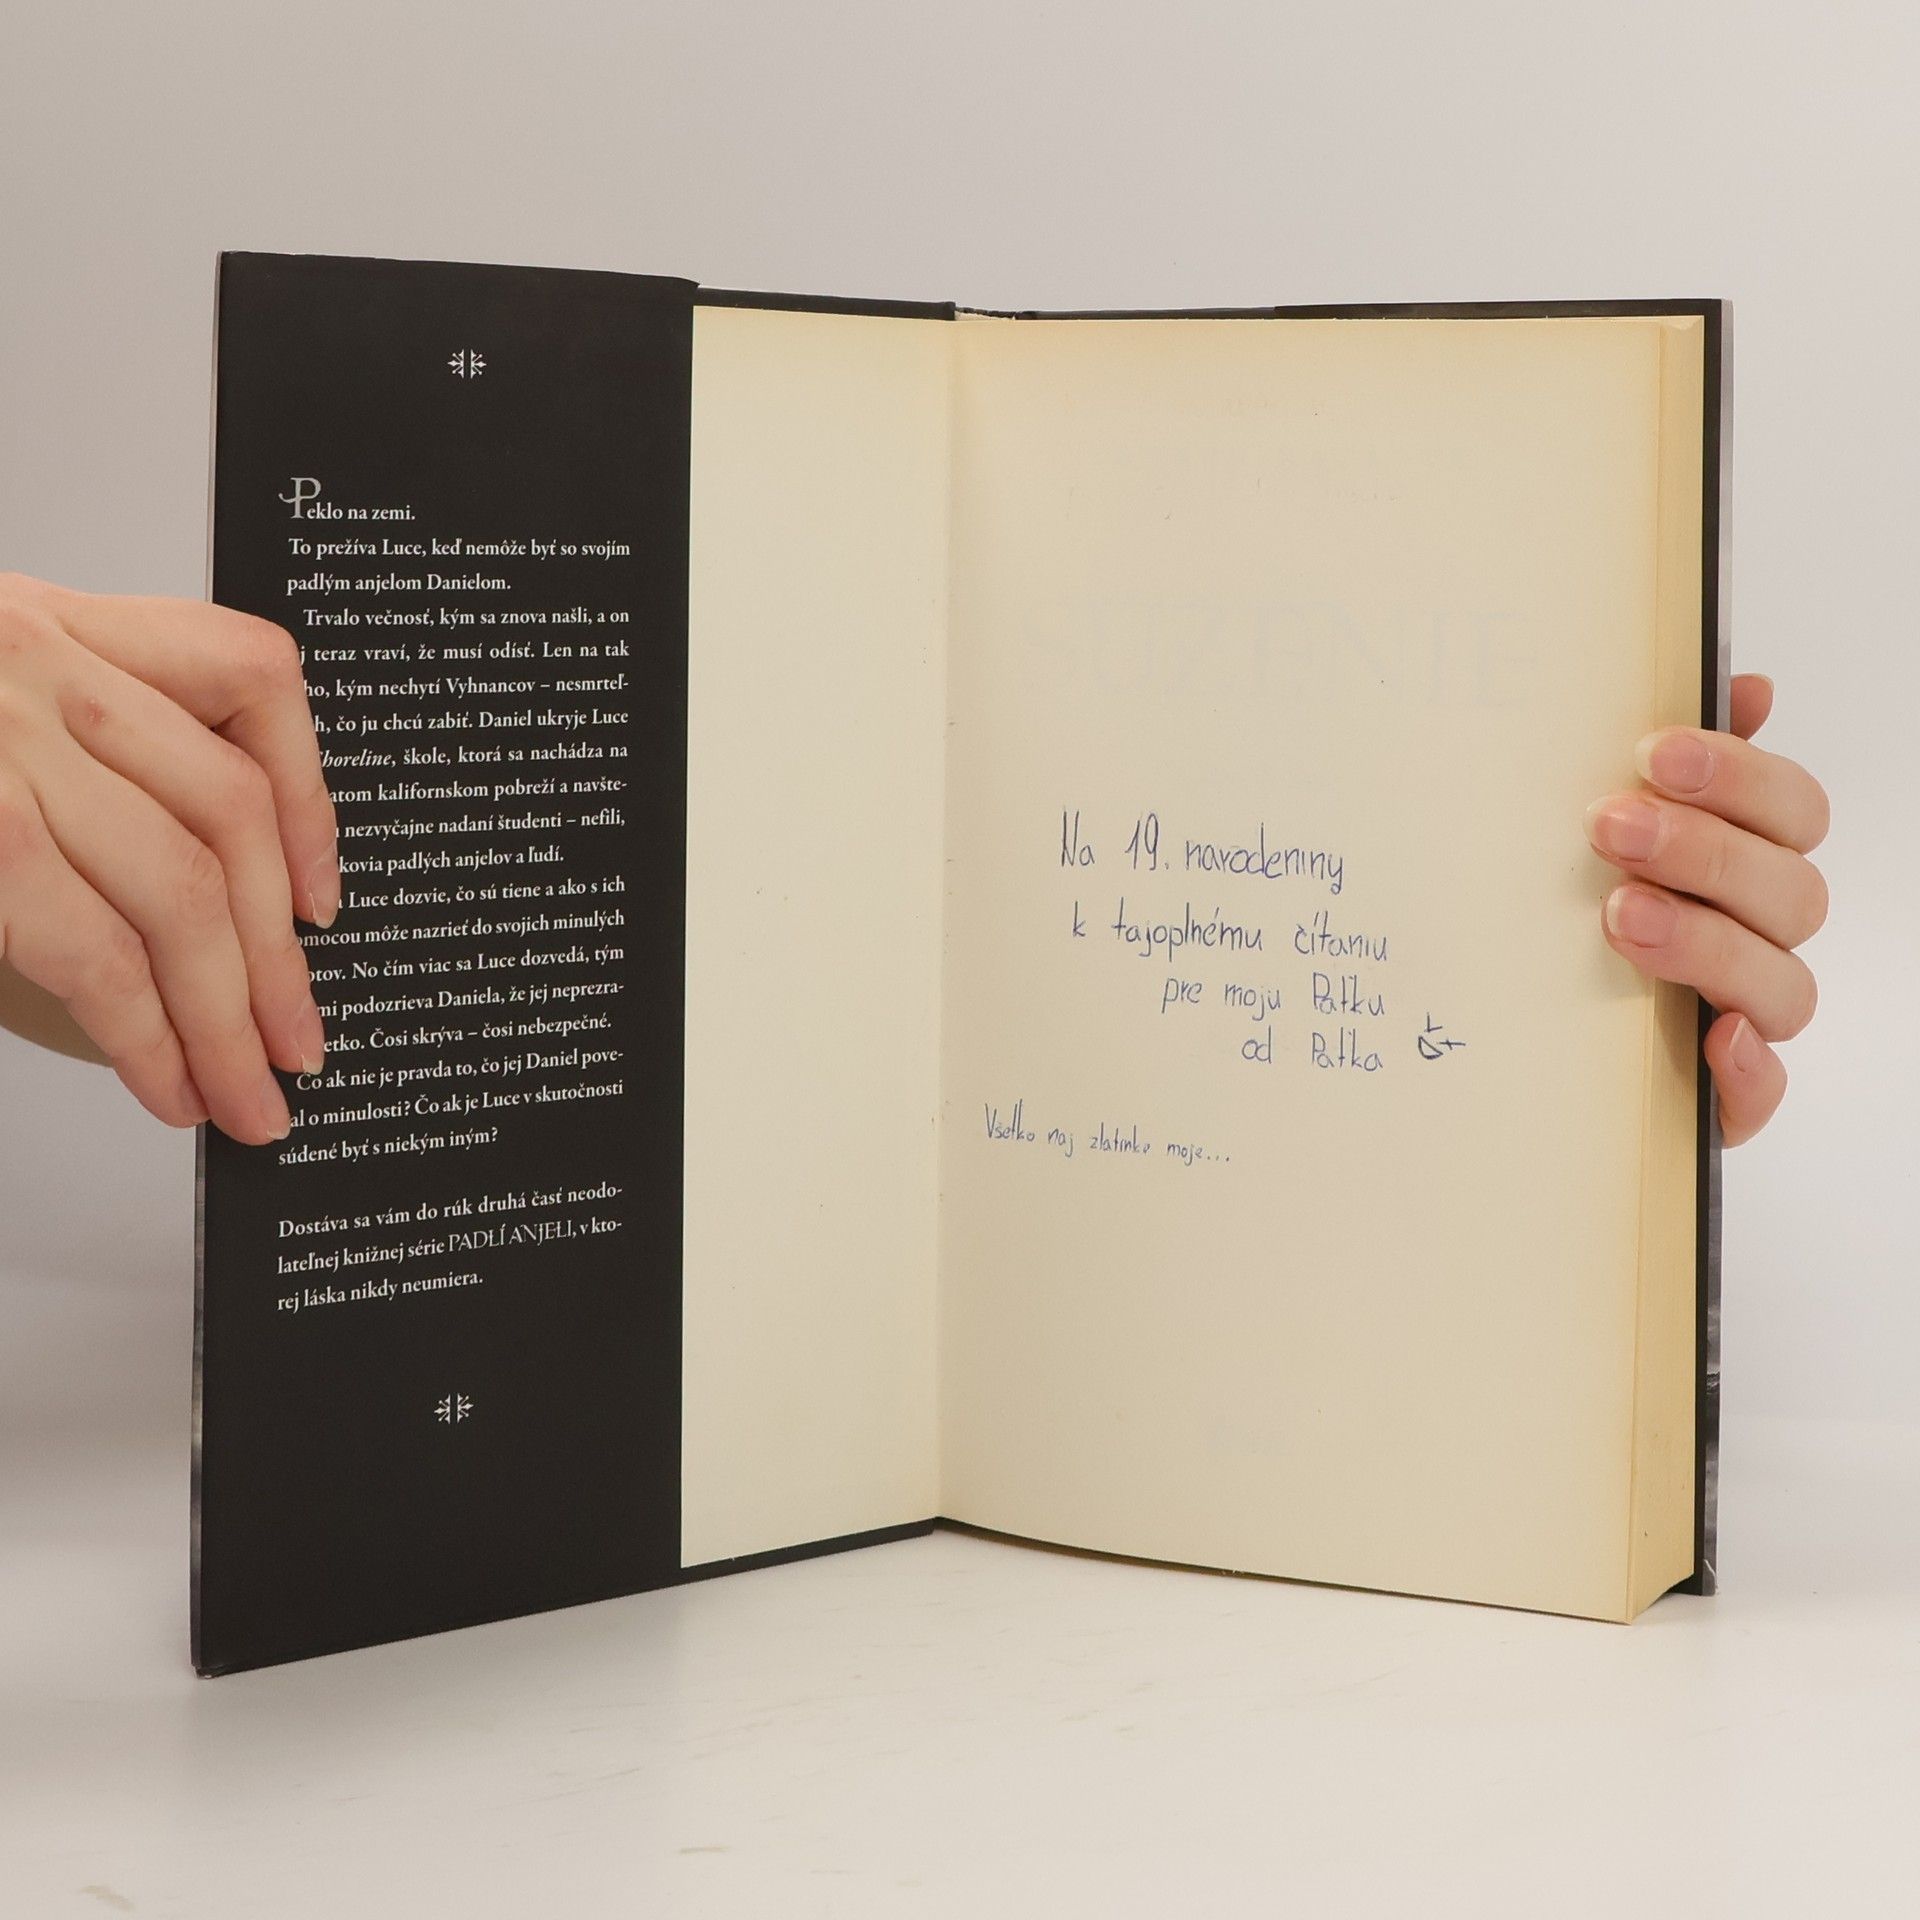 Peklo na zemi.
To prežíva Luce, keď nemôže byť so svojím
padlým anjelom Danielom.
Trvalo večnosť, kým sa znova našli, a on
j teraz vraví, že musí odísť. Len na tak
ho, kým nechytí Vyhnancov – nesmrteľ-
h, čo ju chcú zabiť. Daniel ukryje Luce
horeline, škole, ktorá sa nachádza na
atom kalifornskom pobreží a navšte-
nezvyčajne nadaní študenti – nefili,
kovia padlých anjelov a ľudí.
Luce dozvie, čo sú tiene a ako s ich
omocou môže nazrieť do svojich minulých
otov. No čím viac sa Luce dozvedá, tým
mi podozrieva Daniela, že jej neprezra-
etko. Čosi skrýva – čosi nebezpečné.
Čo ak nie je pravda to, čo jej Daniel pove-
al o minulosti? Čo ak je Luce v skutočnosti
súdené byť s niekým iným?
Dostáva sa vám do rúk druhá časť neodo-
lateľnej knižnej série PADLÍ ANJELI, v kto-
rej láska nikdy neumiera.
Na 19. narodeniny
k tajoplnému čítaniu
pre moju Paťku
od Paťka
Všetko naj zlatinko moje...